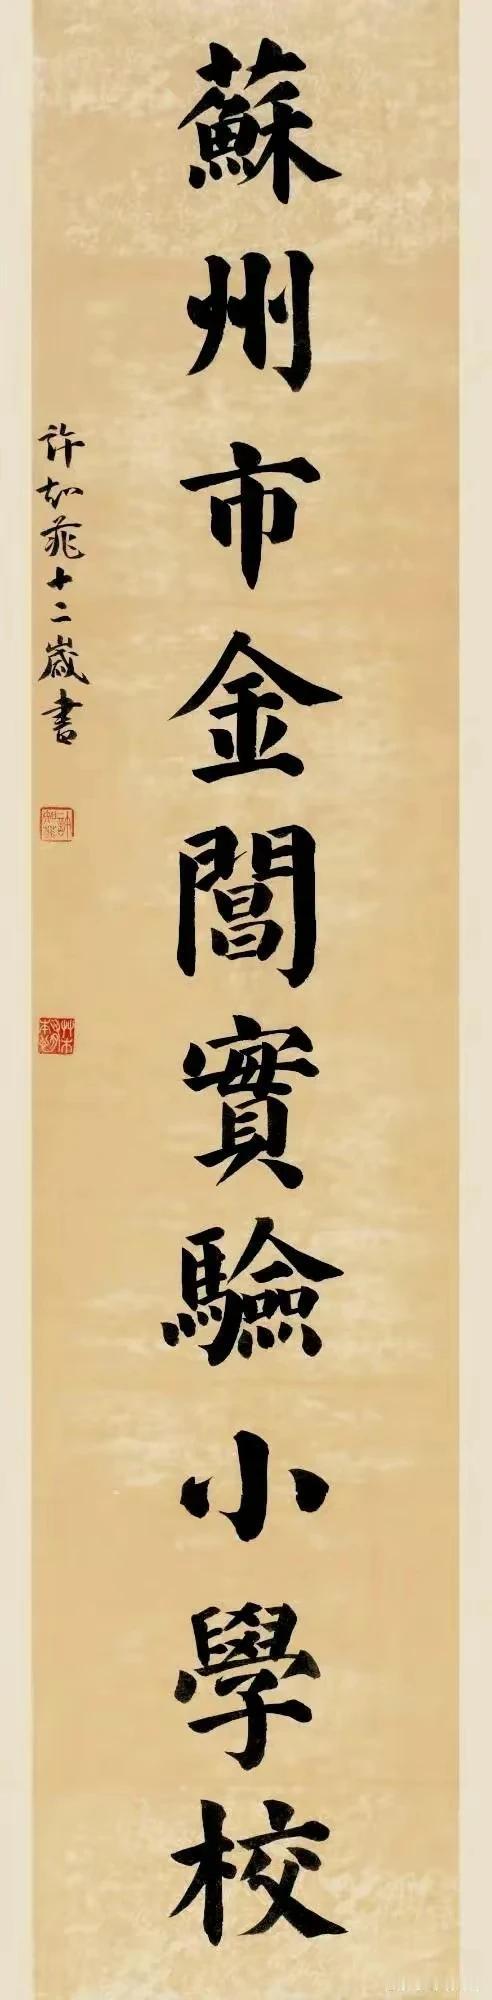 蘇州市金閶實驗小學校
許知菲十二歲書